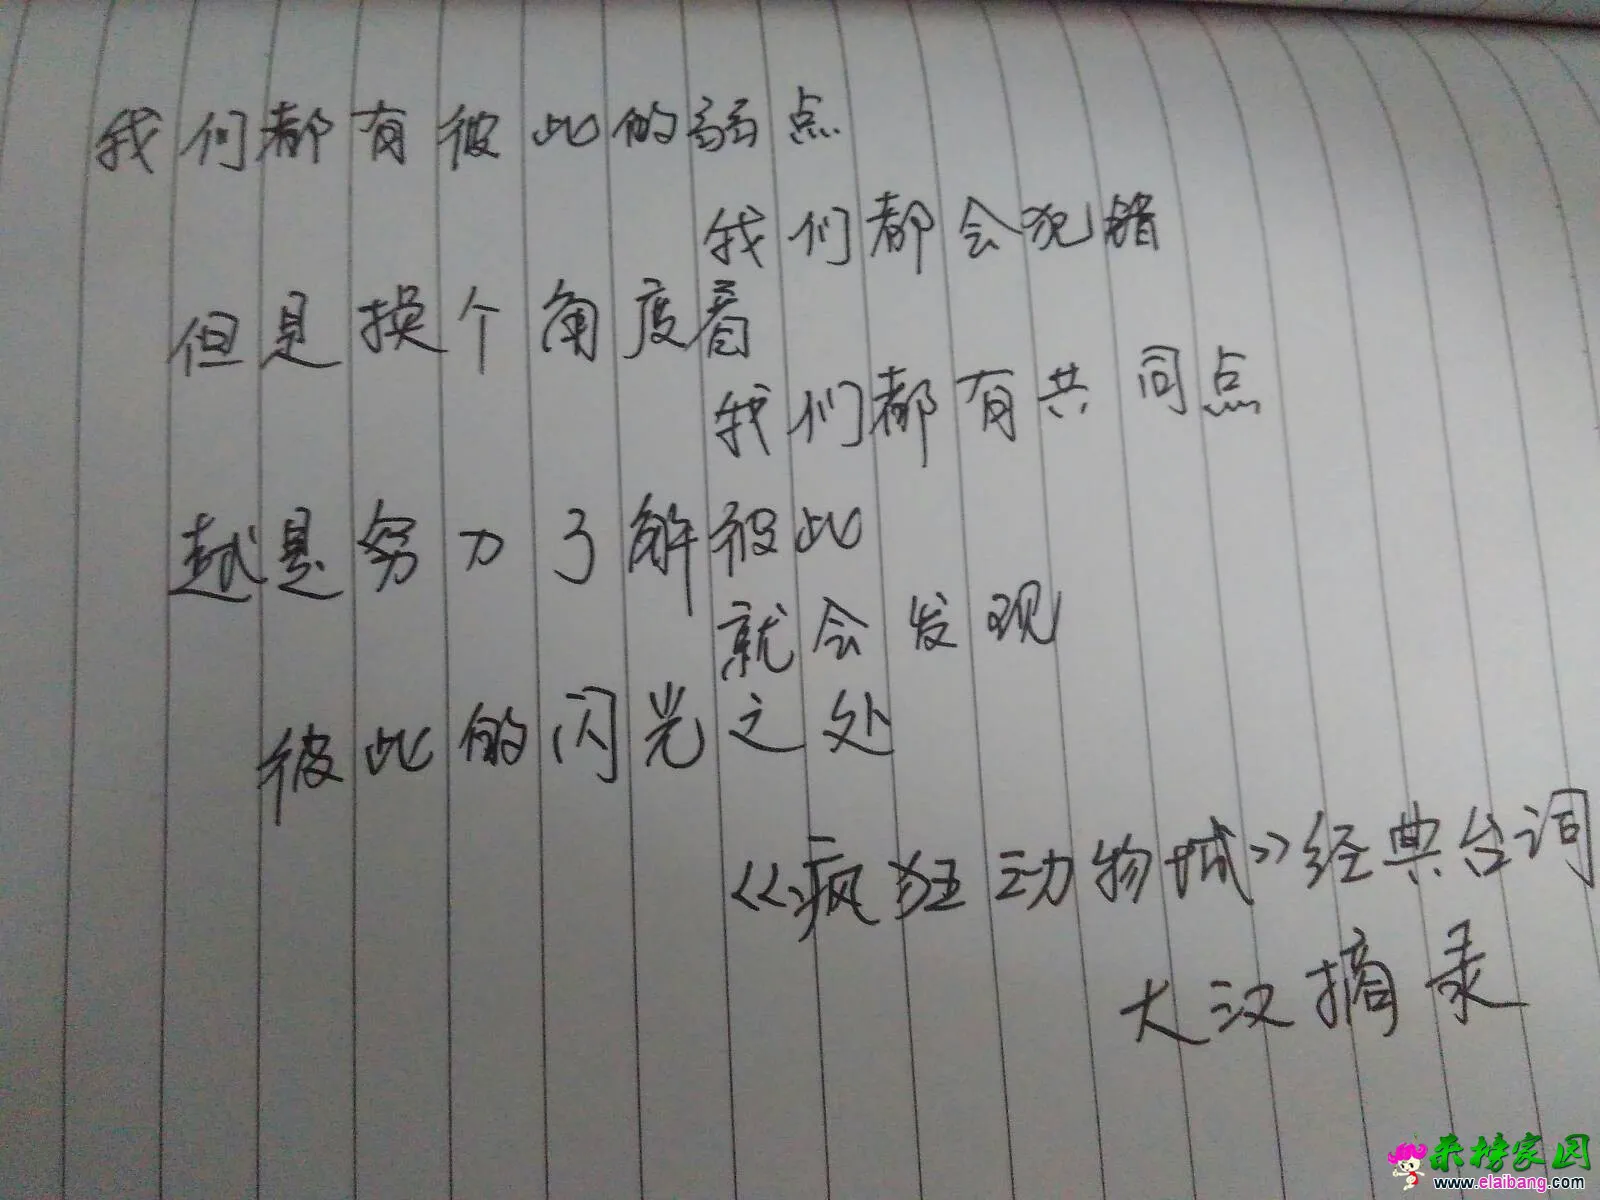 我们都有彼此的弱点
我们都会犯错
但是换个角度看
我们都有共同点
越是努力了解彼此
就会发现
彼此的闪光之处
《疯狂动物城》经典台词
大汉摘录
来榜家园
www.elaibang.com